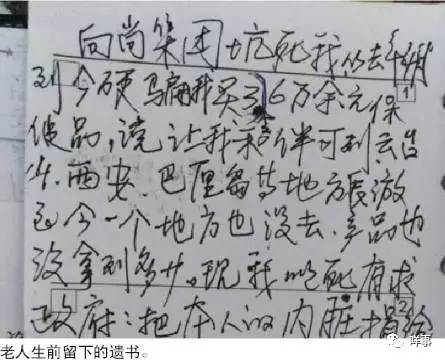 向尚集团坑死我从去年期
到今硬骗我买了6万余元保
健品,说让我和老伴可到云台
山.西安.巴厘岛等地方旅游
至今一个地方也没去.产品也
没拿到多少.现我以死有求
政府:把本人的内脏捐给
1
2
老人生前留下的遗书。